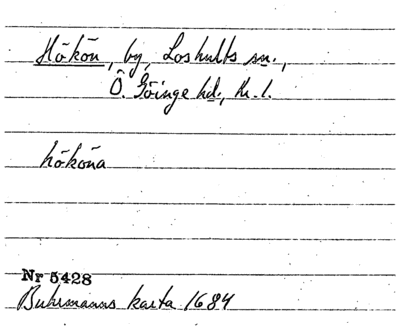 Hökön, by, Loshults sn.,
Ö. Göinge hd., Kr. l.
hököna
Nr 5428
Buhrmanns karta 1684